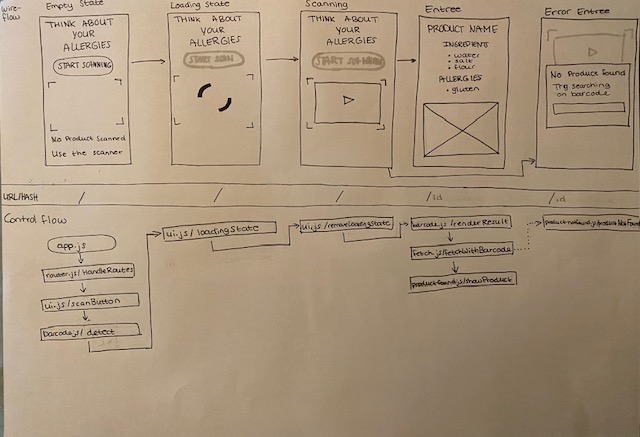 wire-
flow
Empty State
THINK ABOUT
YOUR
ALLERGIES
START SCANNING
No Product Scanned
Use the scanner
Loading State
THINK ABOUT
YOUR
ALLERGIES
START SCAN
Scanning
THINK ABOUT
YOUR
ALLERGIES
START
Entree
PRODUCT NAME
INGREDIENT
• water
• salt
• flour
ALLERGIES
• gluten
Error Entree
No Product Found
Try searching
on barcode
URL/HASH
/
/
/
/id
/id
Control flow
app.js
router.js/HandleRoutes
ui.js/scanButton
barcode.js/detect
ui.js/loadingState
ui.js/removeLoadingState
barcode.js/renderResult
fetch.js/fetchWithBarcode
productfound.js/showProduct